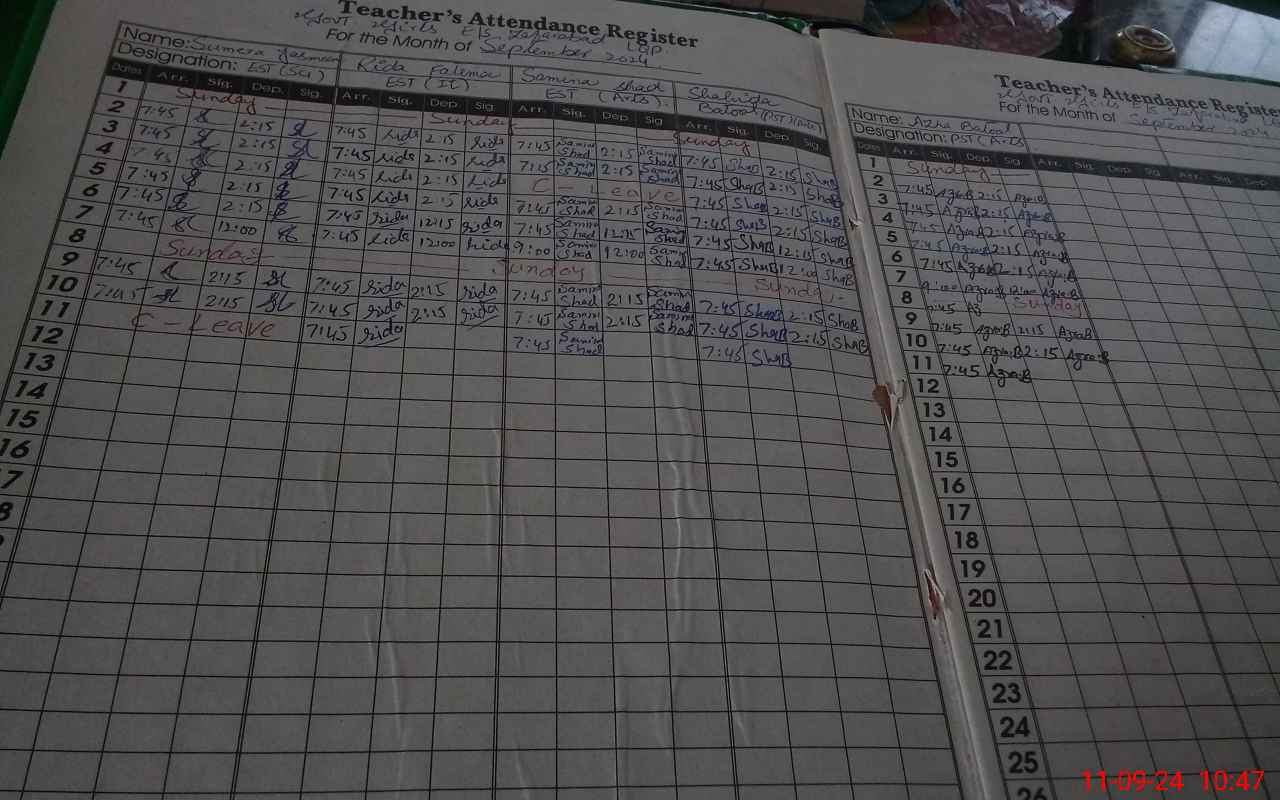 Teacher's Attendance Register
Govt Girls E/S Zafarabad Lap.
For the Month of September 2024.
Name: Sumera Yasmeen Rida Fatema Samina Shad Shahida
Designation: EST (Sci) EST (IT) EST (Arts). Batool (PST)(Arts)
Dates Arr. Sig. Dep. Sig. Arr. Sig. Dep. Sig. Arr. Sig. Dep. Sig. Arr. Sig. Dep. Sig.
1 Sunday Sunday Sunday
2 7:45 2:15 7:45 rida 2:15 rida 7:45 Samina Shad 2:15 Samina Shad 7:45 ShaB 2:15 ShaB
3 7:45 2:15 7:45 rida 2:15 rida 7:15 Samina Shad 2:15 Samina Shad 7:45 ShaB 2:15 ShaB
4 7:45 2:15 7:45 rida 2:15 rida C - Leave 7:45 ShaB 2:15 ShaB
5 7:45 2:15 7:45 rida 2:15 rida 7:45 Samina Shad 2:15 Samina Shad 7:45 ShaB 2:15 ShaB
6 7:45 2:15 7:45 rida 12:15 rida 7:45 Samina Shad 12:15 Samina Shad 7:45 ShaB 12:15 ShaB
7 7:45 12:00 7:45 rida 12:00 rida 9:00 Samina Shad 12:00 Samina Shad 7:45 ShaB 12:00 ShaB
8 Sunday Sunday Sunday
9 7:45 2:15 7:45 rida 2:15 rida 7:45 Samina Shad 2:15 Samina Shad 7:45 ShaB 2:15 ShaB
10 7:45 2:15 7:45 rida 2:15 rida 7:45 Samina Shad 2:15 Samina Shad 7:45 ShaB 2:15 ShaB
11 C - Leave 7:45 rida 7:45 Samina Shad 7:45 ShaB
12
13
14
15
16
7
8
Teacher's Attendance Register
Govt Girls E/S
For the Month of September 2024
Name: Azra Batool
Designation: PST (Arts
Dates Arr. Sig. Dep. Sig. Arr. Sig. Dep. Sig. Arr. Sig. Dep.
1 Sunday
2 7:45 AzraB 2:15 AzraB
3 7:45 AzraB 2:15 AzraB
4 7:45 AzraB 2:15 AzraB
5 7:45 AzraB 2:15 AzraB
6 7:45 AzraB 12:15 AzraB
7 9:00 AzraB 12:00 AzraB
8 7:45 Az Sunday
9 7:45 AzraB 2:15 AzraB
10 7:45 AzraB 2:15 AzraB
11 7:45 AzraB
12
13
14
15
16
17
18
19
20
21
22
23
24
25
26
11-09-24 10:47